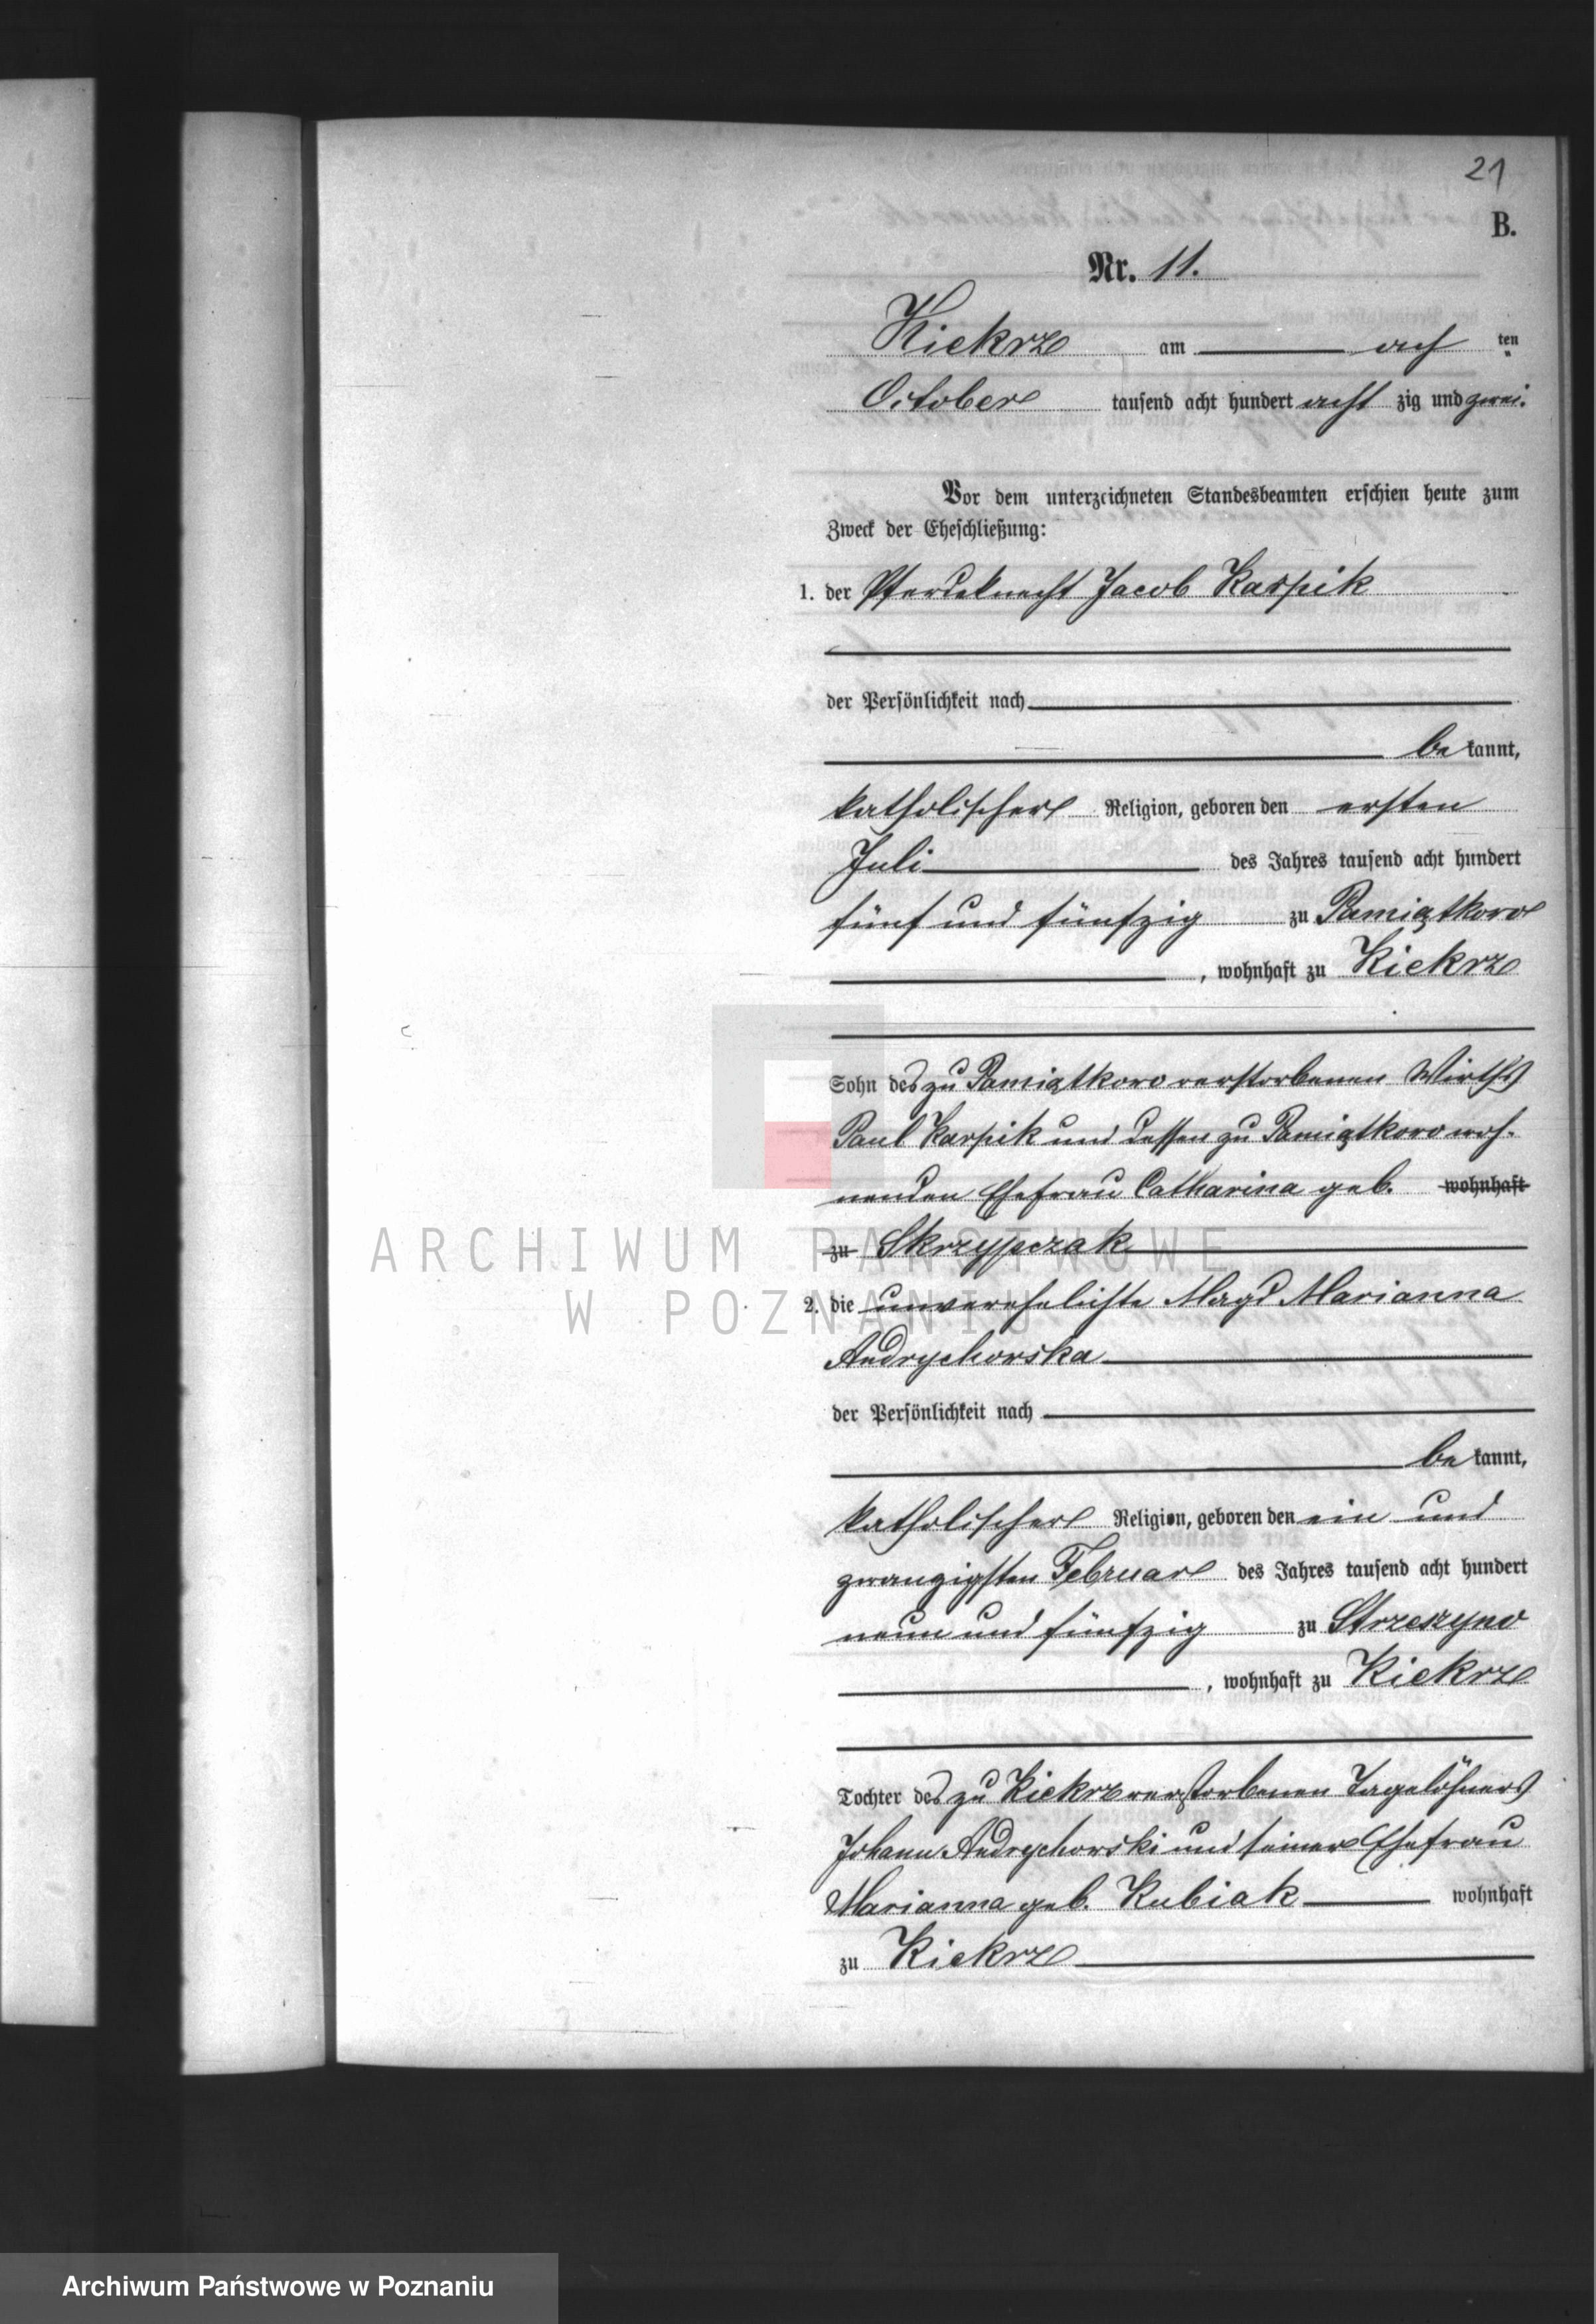 21
B.
Nr. 11.
Kiekrz am ach ten
October tausend acht hundert acht zig und zwei.
Vor dem unterzeichneten Standesbeamten erschien heute zum
Zweck der Eheschließung:
1. der Pferdeknecht Jacob Kaspik
der Persönlichkeit nach
be kannt,
katholischer Religion, geboren den ersten
Juli des Jahres tausend acht hundert
fünf und fünfzig zu Pamiątkowo
, wohnhaft zu Kiekrz
Sohn des zu Pamiątkowo verstorbenen Wirths
Paul Kaspik und dessen zu Pamiątkowo woh-
nenden Ehefrau Catharina geb. wohnhaft
zu Skrzypczak
2. die unverehelichte Magd Marianna
Andrychowska
der Persönlichkeit nach
be kannt,
katholischer Religion, geboren den ein und
zwanzigsten Februar des Jahres tausend acht hundert
neun und fünfzig zu Strzeszyno
, wohnhaft zu Kiekrz
Tochter des zu Kiekrz verstorbenen Tagelöhners
Johann Andrychowski und seiner Ehefrau
Marianna geb. Kubiak wohnhaft
zu Kiekrz
ARCHIWUM PAŃSTWOWE
W POZNANIU
Archiwum Państwowe w Poznaniu